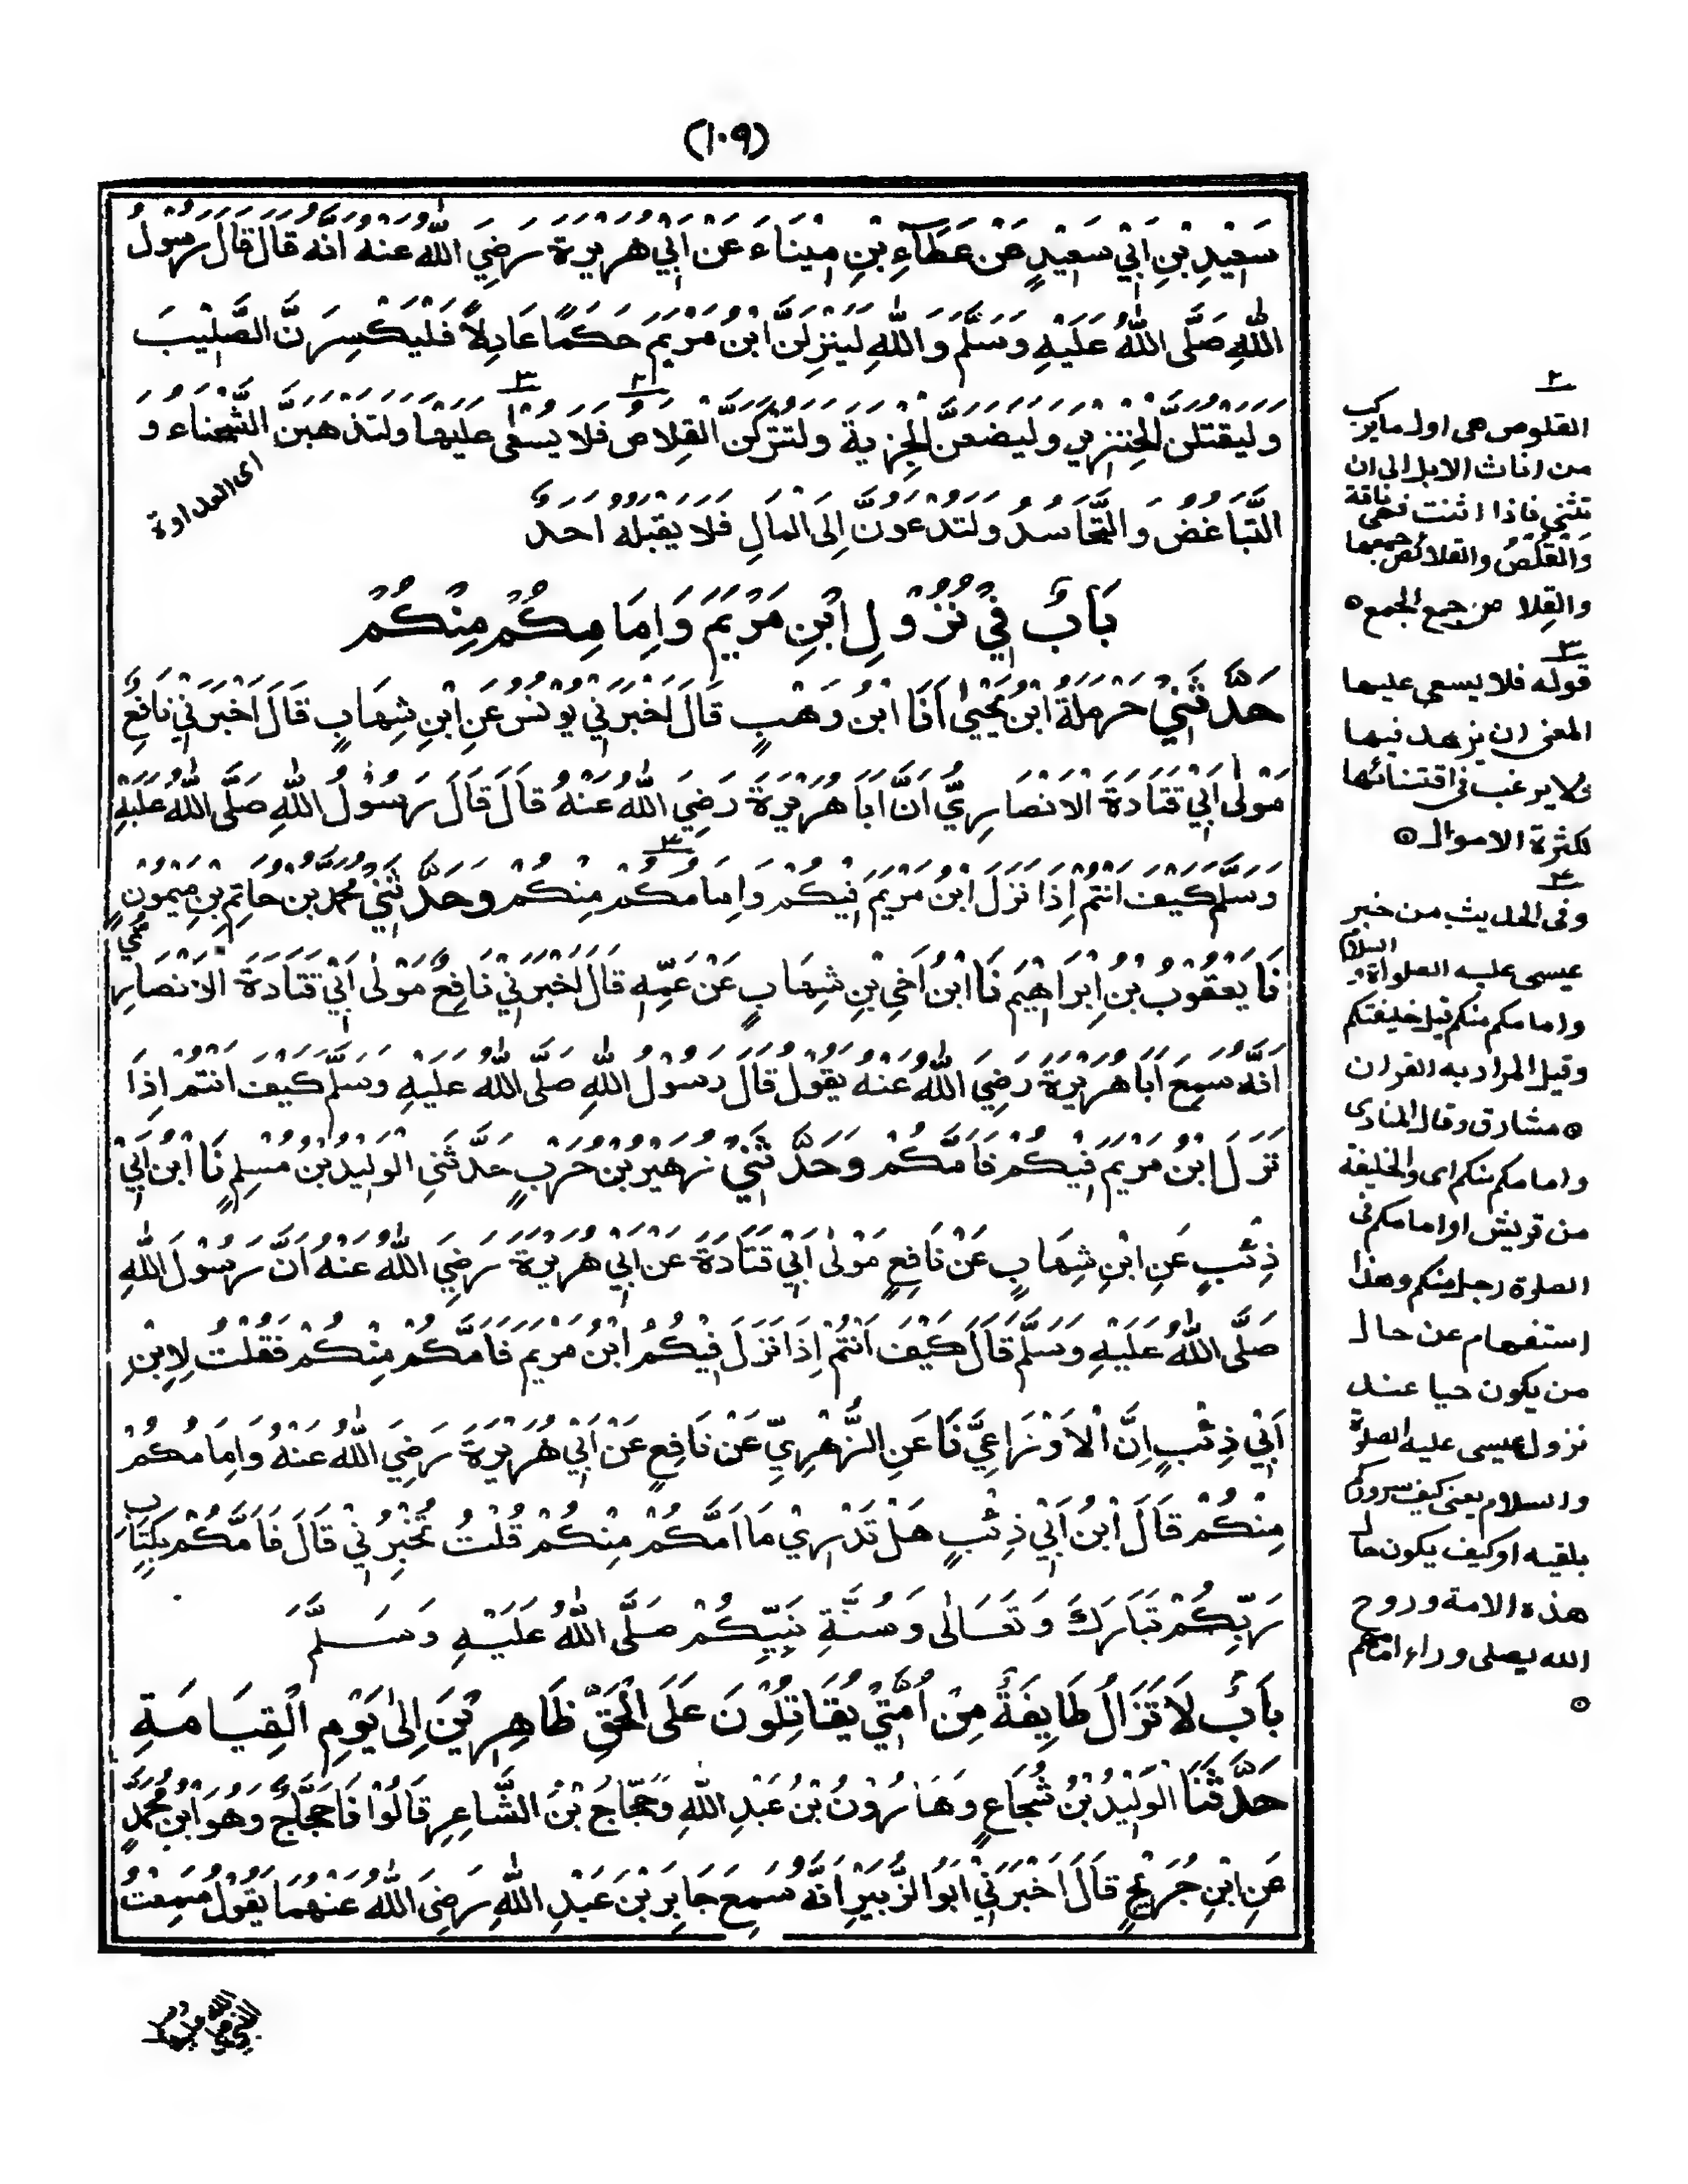 (١٠٩)
سَعِيْدِ بْنِ اَبِيْ سَعِيْدٍ عَنْ عَطَآءِ بْنِ مِيْنَاءَ عَنْ اَبِيْ هُرَيْرَةَ رَضِيَ اللّٰهُ عَنْهُ اَنَّهُ قَالَ قَالَ رَسُوْلُ
اللّٰهِ صَلَّى اللّٰهُ عَلَيْهِ وَسَلَّمَ وَاللّٰهِ لَيَنْزِلَنَّ ابْنُ مَرْيَمَ حَكَمًا عَادِلًا فَلَيَكْسِرَنَّ الصَّلِيْبَ
وَلَيَقْتُلَنَّ الْخِنْزِيْرَ وَلَيَضَعَنَّ الْجِزْيَةَ وَلَتُتْرَكَنَّ الْقِلَاصُ ٢ فَلَا يُسْعٰى ٣ عَلَيْهَا وَلَتَذْهَبَنَّ الشَّحْنَاءُ وَ
اى العداوة
التَّبَاغُضُ وَالتَّحَاسُدُ وَلَتُدْعَوُنَّ اِلَى الْمَالِ فَلَا يَقْبَلُهُ اَحَدٌ
بَابٌ فِيْ نُزُوْلِ ابْنِ مَرْيَمَ وَاِمَامِكُمْ مِنْكُمْ
حَدَّثَنِيْ حَرْمَلَةُ ابْنُ يَحْيٰى اَنَا ابْنُ وَهْبٍ قَالَ اَخْبَرَنِيْ يُوْنُسُ عَنِ ابْنِ شِهَابٍ قَالَ اَخْبَرَنِيْ نَافِعٌ
مَوْلٰى اَبِيْ قَتَادَةَ الْاَنْصَارِيِّ اَنَّ اَبَا هُرَيْرَةَ رَضِيَ اللّٰهُ عَنْهُ قَالَ قَالَ رَسُوْلُ اللّٰهِ صَلَّى اللّٰهُ عَلَيْهِ
وَسَلَّمَ كَيْفَ اَنْتُمْ اِذَا نَزَلَ ابْنُ مَرْيَمَ فِيْكُمْ وَاِمَامُكُمْ ٤ مِنْكُمْ وَحَدَّثَنِيْ مُحَمَّدُ بْنُ حَاتِمِ بْنِ مَيْمُوْنٍ
نَا يَعْقُوْبُ بْنُ اِبْرَاهِيْمَ نَا ابْنُ اَخِيْ بْنِ شِهَابٍ عَنْ عَمِّهِ قَالَ اَخْبَرَنِيْ نَافِعٌ مَوْلٰى اَبِيْ قَتَادَةَ الْاَنْصَارِيِّ
اَنَّهُ سَمِعَ اَبَا هُرَيْرَةَ رَضِيَ اللّٰهُ عَنْهُ يَقُوْلُ قَالَ رَسُوْلُ اللّٰهِ صَلَّى اللّٰهُ عَلَيْهِ وَسَلَّمَ كَيْفَ اَنْتُمْ اِذَا
نَزَلَ ابْنُ مَرْيَمَ فِيْكُمْ فَاَمَّكُمْ وَحَدَّثَنِيْ زُهَيْرُ بْنُ حَرْبٍ حَدَّثَنِي الْوَلِيْدُ بْنُ مُسْلِمٍ نَا ابْنُ اَبِيْ
ذِئْبٍ عَنِ ابْنِ شِهَابٍ عَنْ نَافِعٍ مَوْلٰى اَبِيْ قَتَادَةَ عَنْ اَبِيْ هُرَيْرَةَ رَضِيَ اللّٰهُ عَنْهُ اَنَّ رَسُوْلَ اللّٰهِ
صَلَّى اللّٰهُ عَلَيْهِ وَسَلَّمَ قَالَ كَيْفَ اَنْتُمْ اِذَا نَزَلَ فِيْكُمُ ابْنُ مَرْيَمَ فَاَمَّكُمْ مِنْكُمْ فَقُلْتُ لِابْنِ
اَبِيْ ذِئْبٍ اِنَّ الْاَوْزَاعِيَّ نَا عَنِ الزُّهْرِيِّ عَنْ نَافِعٍ عَنْ اَبِيْ هُرَيْرَةَ رَضِيَ اللّٰهُ عَنْهُ وَاِمَامُكُمْ
مِنْكُمْ قَالَ ابْنُ اَبِيْ ذِئْبٍ هَلْ تَدْرِيْ مَا اَمَّكُمْ مِنْكُمْ قُلْتُ تُخْبِرُنِيْ قَالَ فَاَمَّكُمْ بِكِتَابِ
رَبِّكُمْ تَبَارَكَ وَتَعَالٰى وَسُنَّةِ نَبِيِّكُمْ صَلَّى اللّٰهُ عَلَيْهِ وَسَلَّمَ
بَابٌ لَا تَزَالُ طَايِفَةٌ مِنْ اُمَّتِيْ يُقَاتِلُوْنَ عَلَى الْحَقِّ ظَاهِرِيْنَ اِلٰى يَوْمِ الْقِيَامَةِ
حَدَّثَنَا الْوَلِيْدُ بْنُ شُجَاعٍ وَهَارُوْنُ بْنُ عَبْدِ اللّٰهِ وَحَجَّاجُ بْنُ الشَّاعِرِ قَالُوْا نَا حَجَّاجٌ وَهُوَ ابْنُ مُحَمَّدٍ
عَنِ ابْنِ جُرَيْجٍ قَالَ اَخْبَرَنِيْ اَبُو الزُّبَيْرِ اَنَّهُ سَمِعَ جَابِرَ بْنَ عَبْدِ اللّٰهِ رَضِيَ اللّٰهُ عَنْهُمَا يَقُوْلُ سَمِعْتُ
٢
القلوص هى اول ما يركب
من اناث الابل الى ان
تثنى فاذا اثنت فهى ناقة
وَالقُلُصُ والقلائص جمعها
والقِلاص جمع الجمع ٥
٣
قوله فلا يسعى عليها
المعنى ان يزهد فيها
فلا يرغب فى اقتنائها
لكثرة الاموال ٥
٤
وفى الحديث من خبر
عيسى عليه الصلواة والسلام
وامامكم منكم قيل خليفتكم
وقيل المراد به القران
٥ مشارق وقال المناوى
وامامكم منكم اى والخليفة
من قريش او امامكم فى
الصلوة رجل منكم وهذا
استفهام عن حال
من يكون حيا عند
نزول عيسى عليه الصلوة
والسلام يعنى كيف سروركم
بلقيه او كيف يكون حال
هذه الامة وروح
الله يصلى وراء امامهم
٥